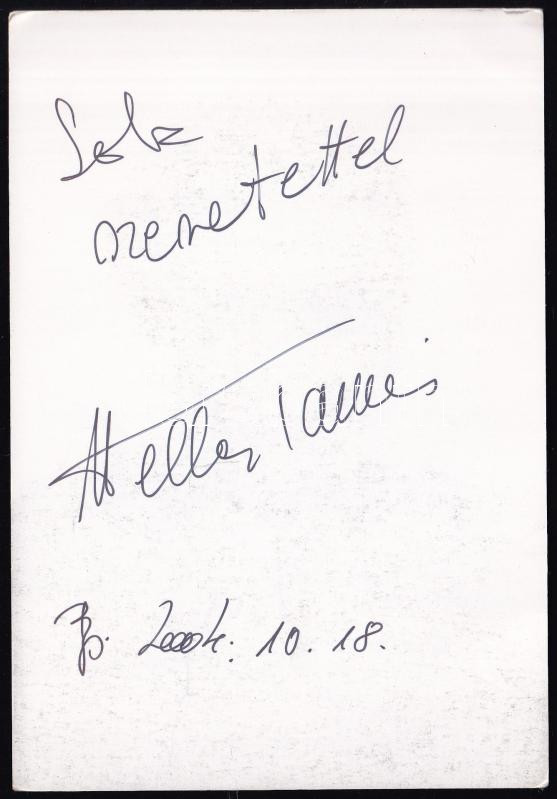 Sok
szeretettel
Heller Tamás
Bp. 2004. 10. 18.